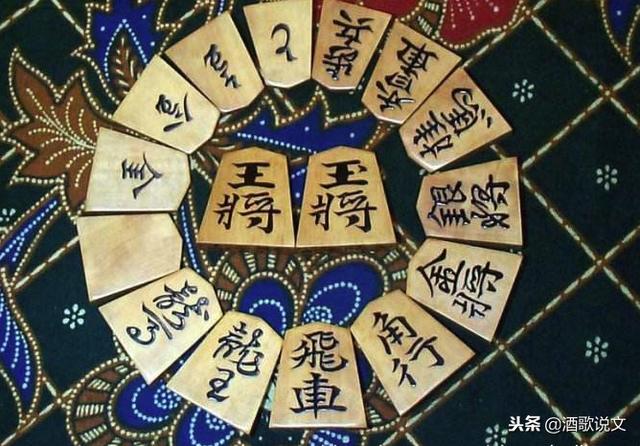 王將
玉將
歩兵
香車
桂馬
銀將
金將
角行
飛車
龍王
龍馬
全
と
头条 @酒歌说文